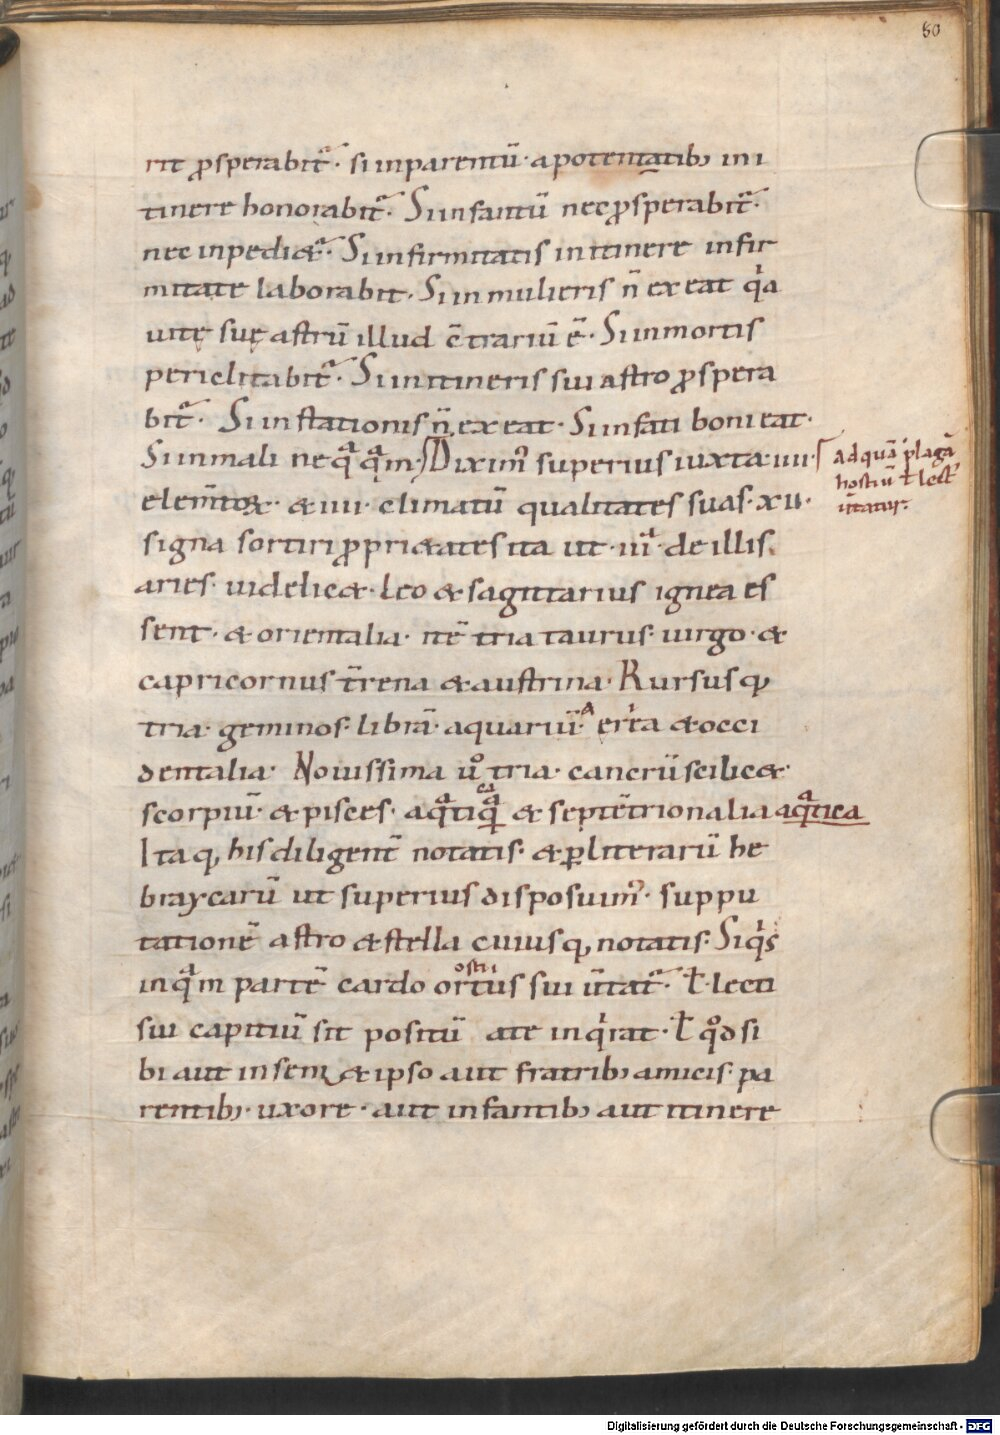 80
rit ꝓsperabit᷑. si inparentū. apotentatibꝫ in i
tinere honorabit᷑. Si infantū nec ꝓsperabit᷑.
nec inpediet᷑. Si infirmitatis initinere infir
mitate laborabit. Si in mulieris n̄ exeat qͥa
uitę suę astrū illud c̄trariū ē. Si inmortis
periclitabit᷑. Si initineris sui astro ꝓspera
bit᷑. Si in stationis n̄ exeat. Si infati boni eat.
Si inmali neqͣqͣm. Diximꝰ superius iuxta. iiii.
ad quā plagā
hostiū ł lect᷑
ūtatur.
elem̄toꝝ. & iiii. climatū qualitates suas. xii.
signa sortiri ꝓprietates ita ut. iiiͣ. de illis.
aries. uidelicet. leo & sagittarius ignea es
sent. & orientalia. nē tria taurus. uirgo. &
capricornus t̄rena & austrina. Rursusqꝫ
tria. geminos. librā. aquariū. aerͥa & occi
dentalia. Nouissima uͦ tria. cancrū scilicet.
scorpiū. & pisces. aqͣtiqͣ ca & septētrionalia aqͣtica
Itaqꝫ his diligent̄ notatis. & ꝑ literarū he
braycarū ut superius disposuimꝰ. suppu
tationē astro & stella cuiusqꝫ notatis. Siqͥs
inqͣm partē cardo ortus ostii sui ūtat᷑. ł. lecti
sui capitiū sit positū ate inqͥrat. ł qͦd si
bi aut insemet ipso aut fratribꝫ amicis. pa
rentibꝫ. uxore. aut infantibꝫ aut itinere
Digitalisierung gefördert durch die Deutsche Forschungsgemeinschaft - DFG